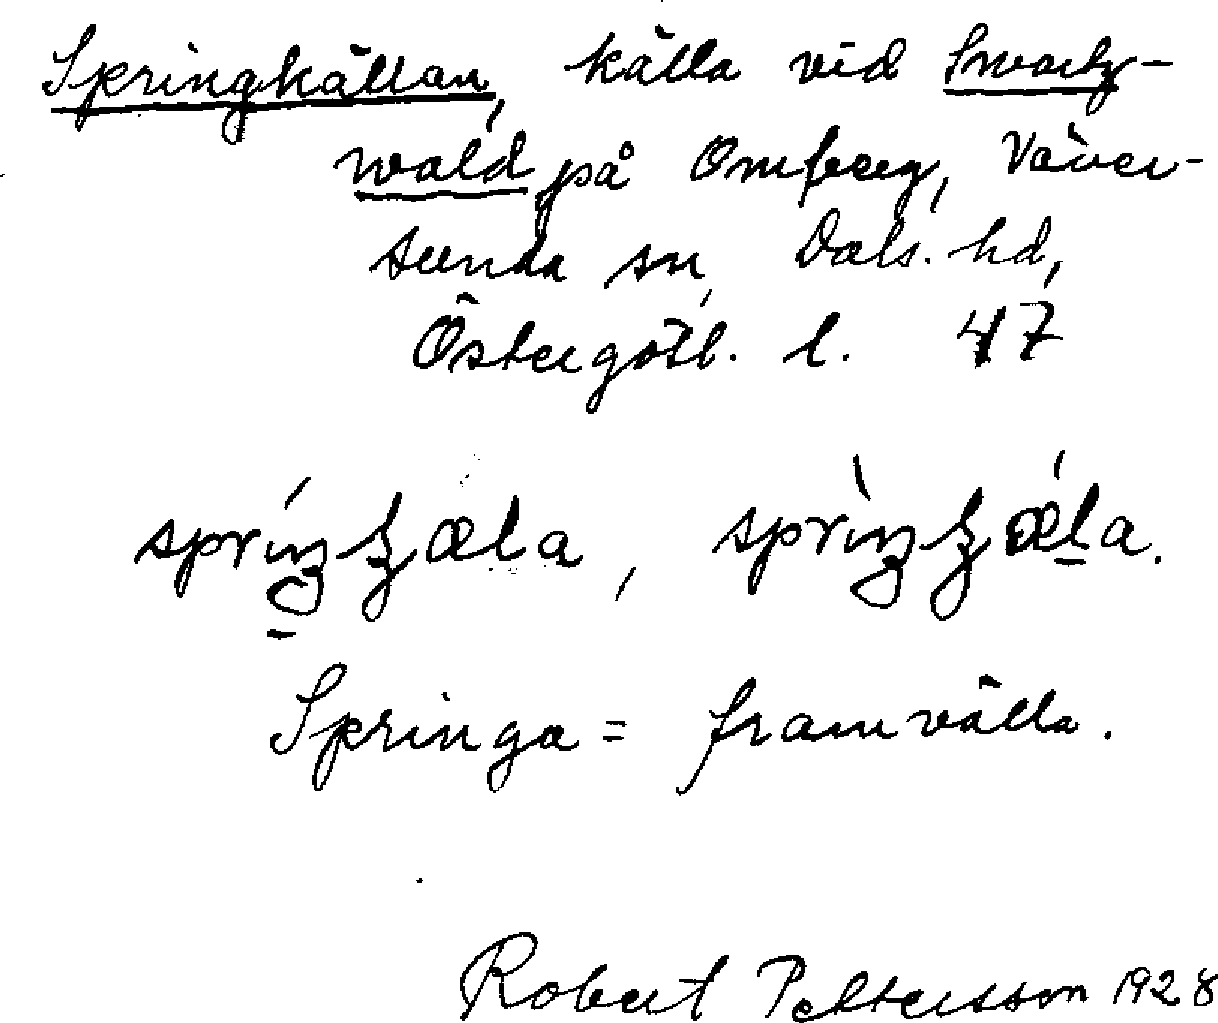 Springkällan, källa vid Swartz-
wald på Omberg, Väver-
sunda sn, Dals. hd,
Östergötl. l. 47
spríŋʒæla, sprìŋʒæ̀la.
Springa = framvälla.
Robert Pettersson 1928